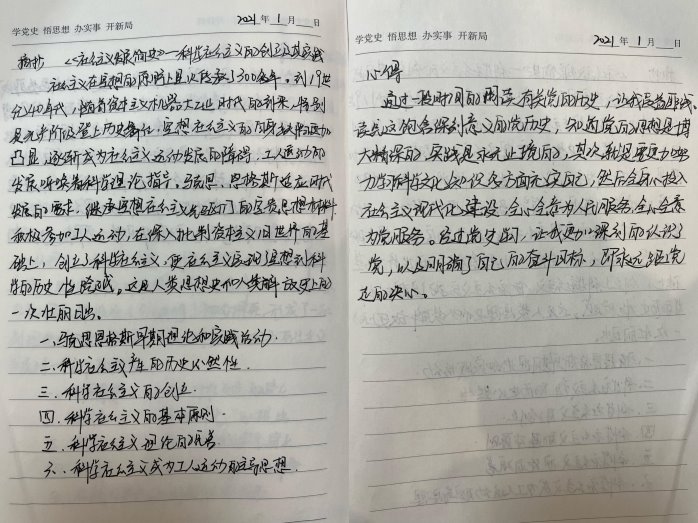 学党史 悟思想 办实事 开新局
2021 年 1 月 日
摘抄 《社会主义发展简史》—科学社会主义的创立及其实践
社会主义在思想的原野上最少传承了300余年。到19世
纪40年代,随着资本主义机器大工业时代的到来,特别
是无产阶级登上历史舞台,空想社会主义的局限
凸显,逐渐成为社会主义运动发展的障碍,工人运动的
发展呼唤着科学理论指导。马克思、恩格斯适应时代
发展的要求,继承空想社会主义的宝贵思想材料
积极参加工人运动,在深入批判资本主义旧世界的基
础上,创立了科学社会主义,使社会主义实现了空想到科
学的历史性飞跃。这是人类思想史和人类解放史上的
一次壮丽日出。
一、马克思恩格斯早期理论和实践活动
二、科学社会主义产生的历史必然性.
三、科学社会主义的创立.
四、科学社会主义的基本原则.
五、科学社会主义理论的完善
六、科学社会主义成为工人运动的主导思想.
学党史 悟思想 办实事 开新局
2021 年 1 月 日
心得
通过一段时间的阅读有关党的历史,让我受益匪浅
读完这饱含深刻意义的党历史,知道党的思想是博
大精深的,实践是永无止境的,其次就是要更加努
力学习科学文化知识多方面充实自己,然后全身心投入
社会主义现代化建设,全心全意为人民服务,全心全意
为党服务。经过党史学习,让我更加深刻的认识了
党,以及明确了自己的奋斗目标,即永远跟党
走的决心。